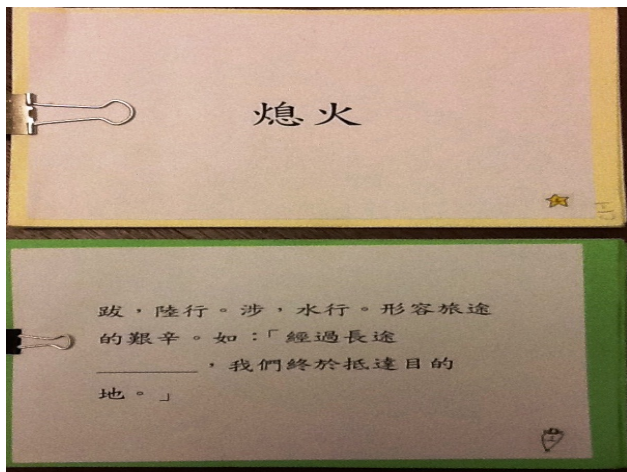 熄火
跋，陸行。涉，水行。形容旅途
的艱辛。如：「經過長途
__________，我們終於抵達目的
地。」